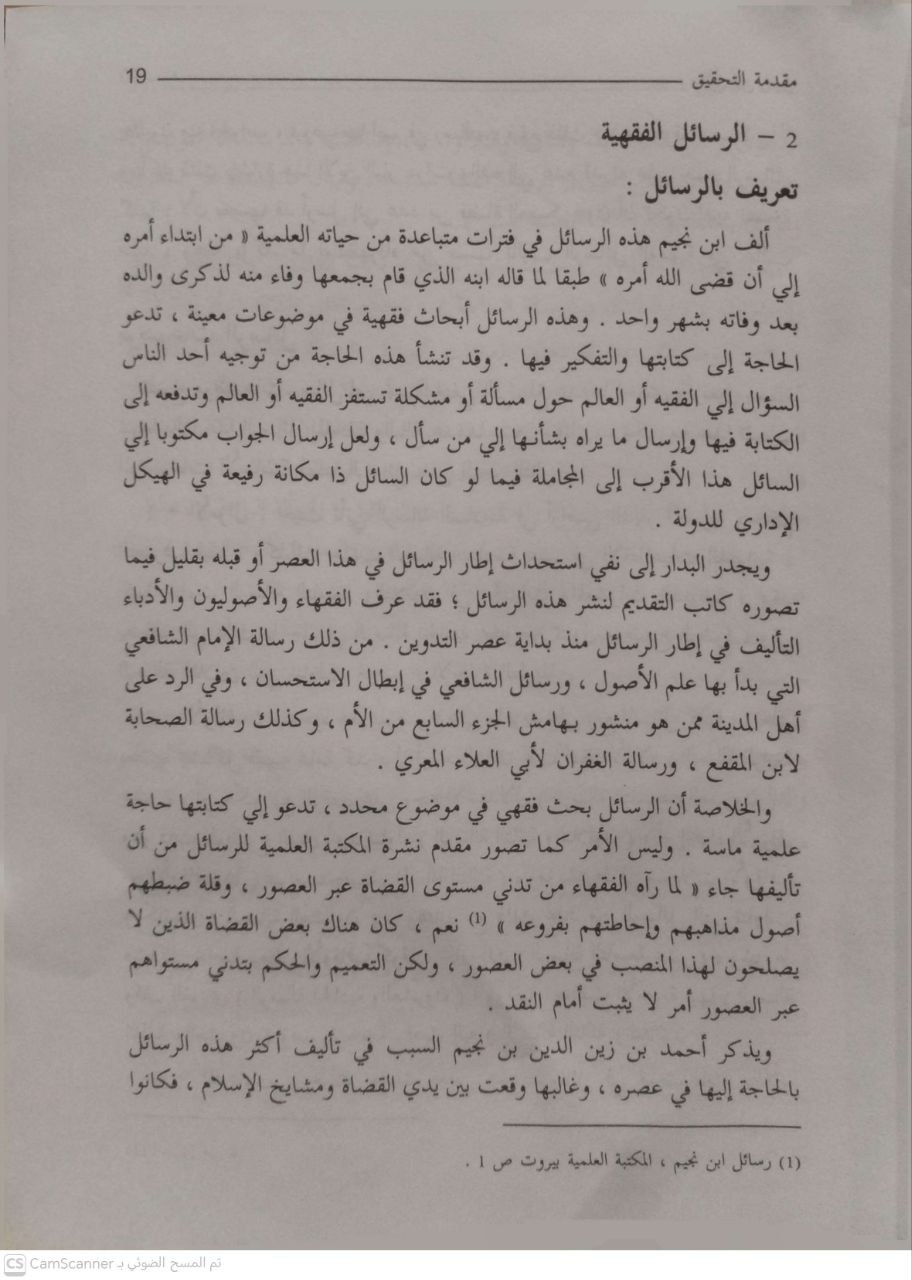 مقدمة التحقيق 19
2 – الرسائل الفقهية
تعريف بالرسائل :
ألف ابن نجيم هذه الرسائل في فترات متباعدة من حياته العلمية « من ابتداء أمره
إلي أن قضى الله أمره » طبقا لما قاله ابنه الذي قام بجمعها وفاء منه لذكرى والده
بعد وفاته بشهر واحد . وهذه الرسائل أبحاث فقهية في موضوعات معينة ، تدعو
الحاجة إلى كتابتها والتفكير فيها . وقد تنشأ هذه الحاجة من توجيه أحد الناس
السؤال إلي الفقيه أو العالم حول مسألة أو مشكلة تستفز الفقيه أو العالم وتدفعه إلى
الكتابة فيها وإرسال ما يراه بشأنها إلي من سأل ، ولعل إرسال الجواب مكتوبا إلي
السائل هذا الأقرب إلى المجاملة فيما لو كان السائل ذا مكانة رفيعة في الهيكل
الإداري للدولة .
ويجدر البدار إلى نفي استحداث إطار الرسائل في هذا العصر أو قبله بقليل فيما
تصوره كاتب التقديم لنشر هذه الرسائل ؛ فقد عرف الفقهاء والأصوليون والأدباء
التأليف في إطار الرسائل منذ بداية عصر التدوين . من ذلك رسالة الإمام الشافعي
التي بدأ بها علم الأصول ، ورسائل الشافعي في إبطال الاستحسان ، وفي الرد على
أهل المدينة ممن هو منشور بهامش الجزء السابع من الأم ، وكذلك رسالة الصحابة
لابن المقفع ، ورسالة الغفران لأبي العلاء المعري .
والخلاصة أن الرسائل بحث فقهي في موضوع محدد ، تدعو إلي كتابتها حاجة
علمية ماسة . وليس الأمر كما تصور مقدم نشرة المكتبة العلمية للرسائل من أن
تأليفها جاء « لما رآه الفقهاء من تدني مستوى القضاة عبر العصور ، وقلة ضبطهم
أصول مذاهبهم وإحاطتهم بفروعه » (1) نعم ، كان هناك بعض القضاة الذين لا
يصلحون لهذا المنصب في بعض العصور ، ولكن التعميم والحكم بتدني مستواهم
عبر العصور أمر لا يثبت أمام النقد .
ويذكر أحمد بن زين الدين بن نجيم السبب في تأليف أكثر هذه الرسائل
بالحاجة إليها في عصره ، وغالبها وقعت بين يدي القضاة ومشايخ الإسلام ، فكانوا
(1) رسائل ابن نجيم ، المكتبة العلمية بيروت ص 1 .
CS CamScanner تم المسح الضوئي بـ